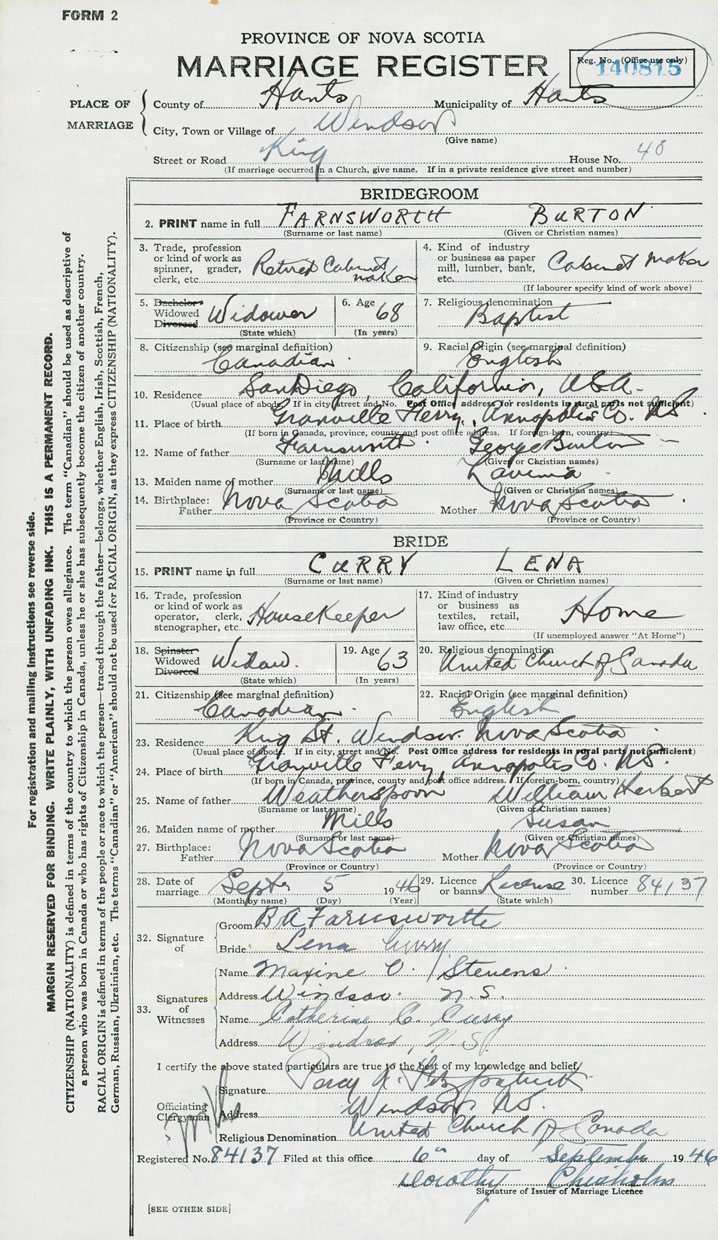 FORM 2
PROVINCE OF NOVA SCOTIA
MARRIAGE REGISTER
Reg. No. (Office use only)
140815
PLACE OF MARRIAGE
County of Hants Municipality of Hants
City, Town or Village of Windsor
(Give name)
Street or Road King House No. 48
(If marriage occurred in a Church, give name. If in a private residence give street and number)
BRIDEGROOM
2. PRINT name in full FARNSWORTH BURTON
(Surname or last name) (Given or Christian names)
3. Trade, profession or kind of work as spinner, grader, clerk, etc. Retired Cabinet maker
4. Kind of industry or business as paper mill, lumber, bank, etc. Cabinet Maker
(If labourer specify kind of work above)
5. Bachelor Widowed Divorced Widower
(State which)
6. Age 68
(In years)
7. Religious denomination
Baptist
8. Citizenship (see marginal definition)
Canadian
9. Racial Origin (see marginal definition)
English
10. Residence San Diego, California, U.S.A.
(Usual place of abode. If in city, street and No. Post Office address for residents in rural parts not sufficient)
11. Place of birth Granville Ferry, Annapolis Co. N.S.
(If born in Canada, province, county and post office address. If foreign-born, country)
12. Name of father Farnsworth George Burton
(Surname or last name) (Given or Christian names)
13. Maiden name of mother Mills Lavinia
(Surname or last name) (Given or Christian names)
14. Birthplace: Father Nova Scotia Mother Nova Scotia
(Province or Country) (Province or Country)
BRIDE
15. PRINT name in full CURRY LENA
(Surname or last name) (Given or Christian names)
16. Trade, profession or kind of work as operator, clerk, stenographer, etc. HouseKeeper
17. Kind of industry or business as textiles, retail, law office, etc. Home
(If unemployed answer "At Home")
18. Spinster Widowed Divorced Widow.
(State which)
19. Age 63
(In years)
20. Religious denomination
United Church of Canada
21. Citizenship (see marginal definition)
Canadian
22. Racial Origin (see marginal definition)
English
23. Residence King St. Windsor Nova Scotia
(Usual place of abode. If in city, street and No. Post Office address for residents in rural parts not sufficient)
24. Place of birth Granville Ferry Annapolis Co. N.S.
(If born in Canada, province, county and post office address. If foreign-born, country)
25. Name of father Weatherspoon William Herbert
(Surname or last name) (Given or Christian names)
26. Maiden name of mother Mills Susan
(Surname or last name) (Given or Christian names)
27. Birthplace: Father Nova Scotia Mother Nova Scotia
(Province or Country) (Province or Country)
28. Date of marriage Sept 5 1946
(Month by name) (Day) (Year)
29. Licence or banns License
(State which)
30. Licence number 84137
32. Signature of
Groom B A Farnsworth
Bride Lena Curry
33. Signatures of Witnesses
Name Maxine O. Stevens
Address Windsor N.S.
Name Catherine C. Curry
Address Windsor, N.S.
I certify the above stated particulars are true to the best of my knowledge and belief.
Officiating Clergyman
Signature Percy A. Fitzpatrick
Address Windsor N.S.
Religious Denomination United Church of Canada
Registered No. 84137 Filed at this office 6th day of September 1946
Dorothy Chisholm
Signature of Issuer of Marriage Licence
[SEE OTHER SIDE]
For registration and mailing instructions see reverse side.
MARGIN RESERVED FOR BINDING. WRITE PLAINLY, WITH UNFADING INK. THIS IS A PERMANENT RECORD.
CITIZENSHIP (NATIONALITY) is defined in terms of the country to which the person owes allegiance. The term "Canadian" should be used as descriptive of
a person who was born in Canada or who has rights of Citizenship in Canada, unless he or she has subsequently become the citizen of another country.
RACIAL ORIGIN is defined in terms of the people or race to which the person—traced through the father—belongs, whether English, Irish, Scottish, French,
German, Russian, Ukrainian, etc. The terms "Canadian" or "American" should not be used for RACIAL ORIGIN, as they express CITIZENSHIP (NATIONALITY).